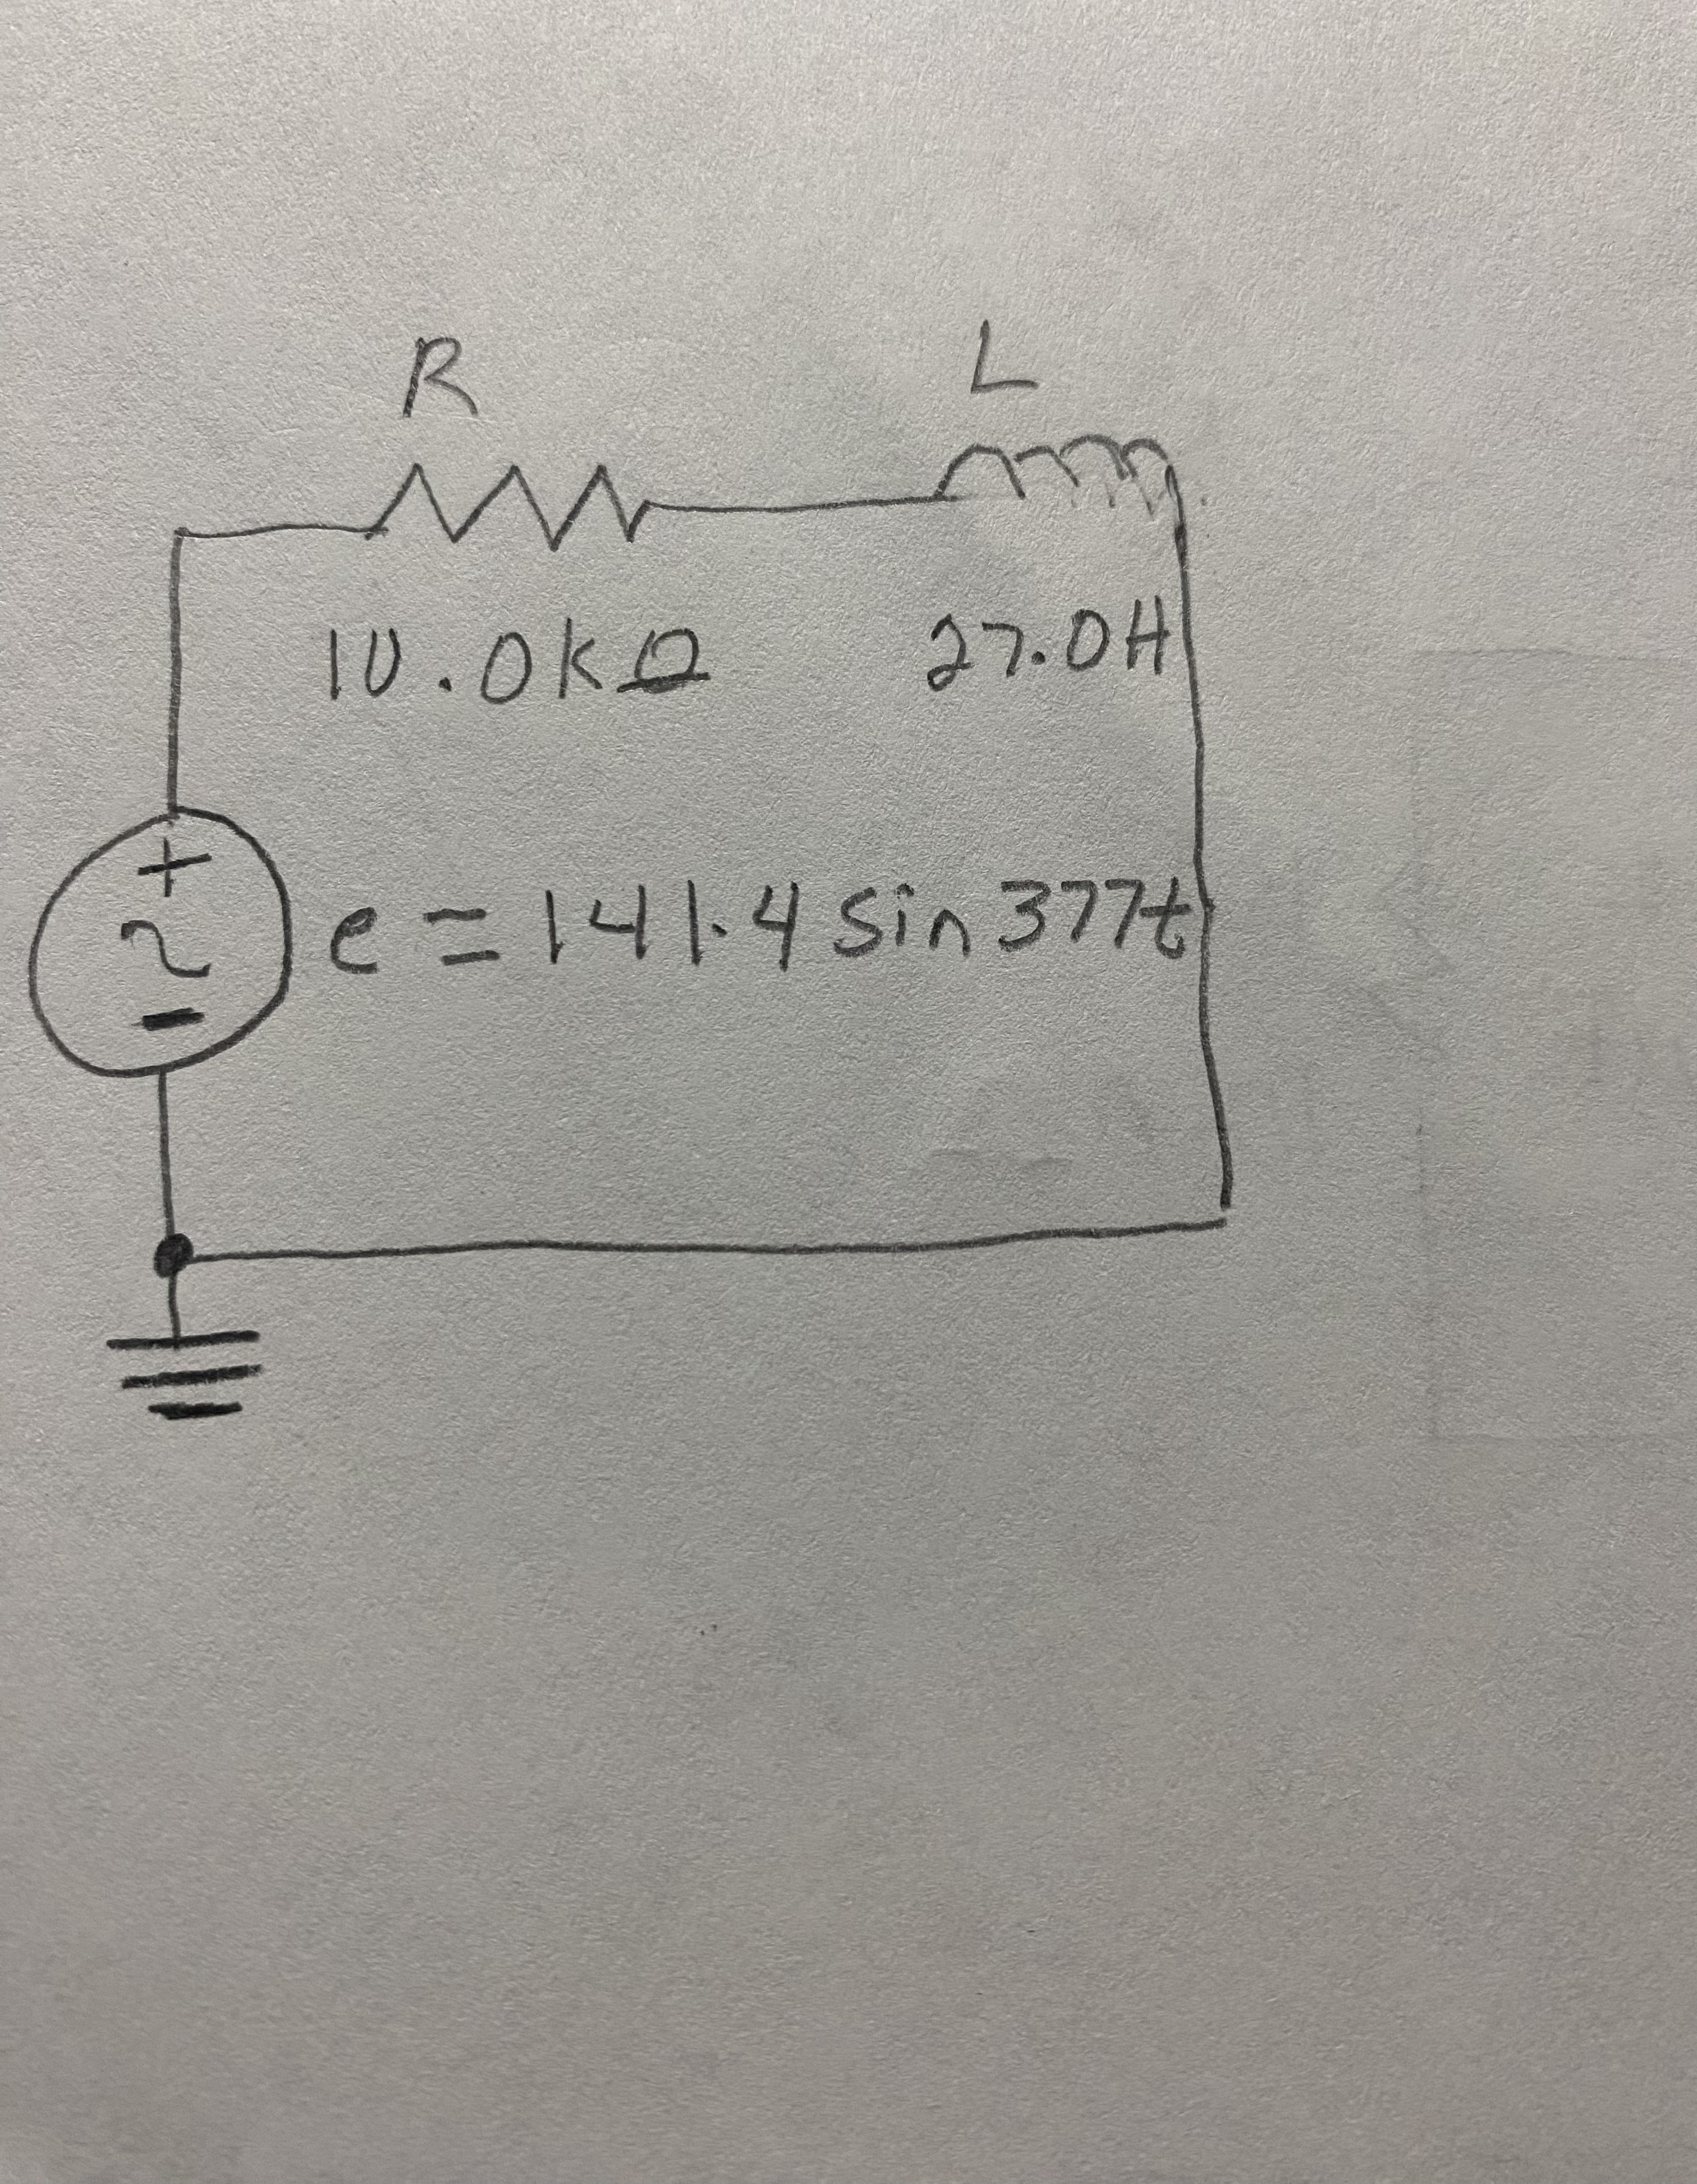 R L
10.0kΩ 27.0H
+
~
-
e = 141.4 sin 377t